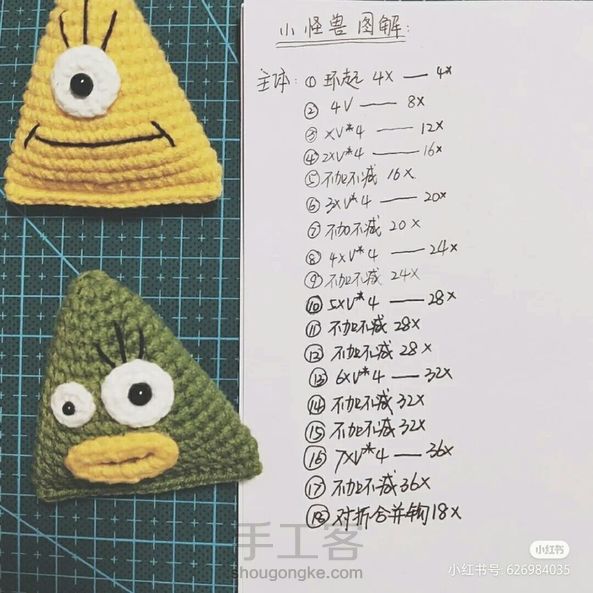 小怪兽图解:
主体: ① 环起 4X — 4X
② 4V — 8X
③ XV*4 — 12X
④ 2XV*4 — 16X
⑤ 不加不减 16X
⑥ 3XV*4 — 20X
⑦ 不加不减 20X
⑧ 4XV*4 — 24X
⑨ 不加不减 24X
⑩ 5XV*4 — 28X
⑪ 不加不减 28X
⑫ 不加不减 28X
⑬ 6XV*4 — 32X
⑭ 不加不减 32X
⑮ 不加不减 32X
⑯ 7XV*4 — 36X
⑰ 不加不减 36X
⑱ 对折合并钩18X
手工客
shougongke.com
小红书
小红书号: 626984035